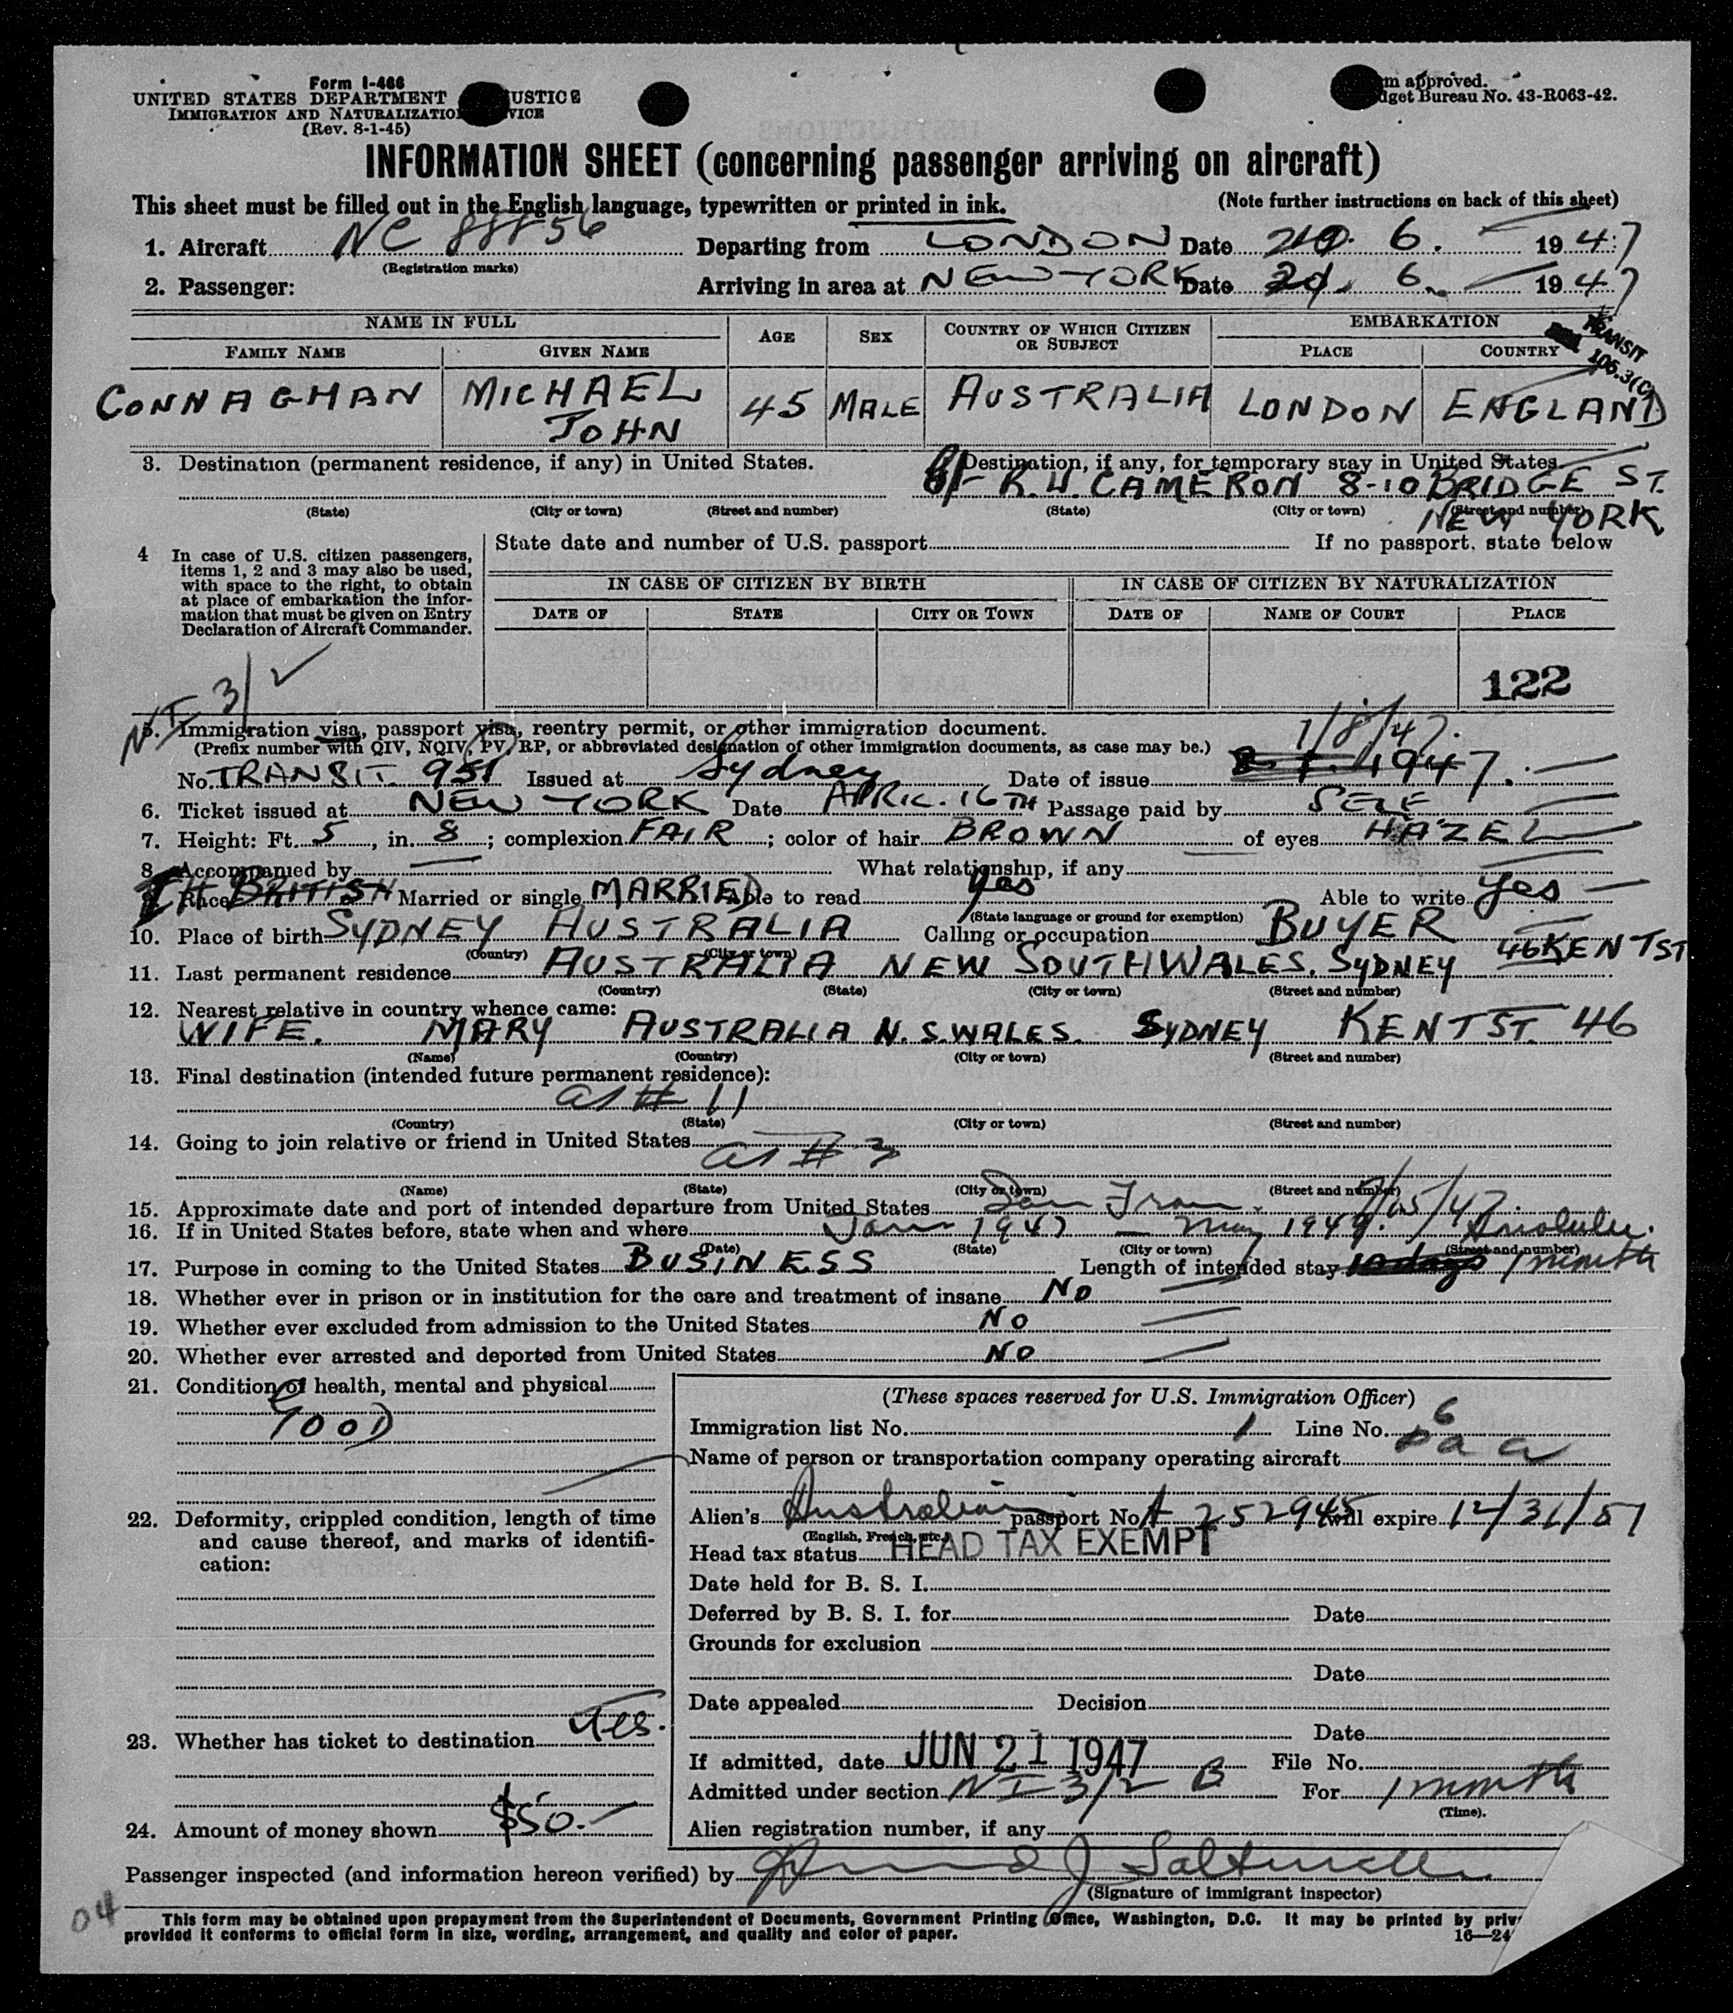 Form I-466
UNITED STATES DEPARTMENT USTICE
IMMIGRATION AND NATURALIZATIO VICE
(Rev. 8-1-45)
m approved.
dget Bureau No. 43-R063-42.
INFORMATION SHEET (concerning passenger arriving on aircraft)
This sheet must be filled out in the English language, typewritten or printed in ink. (Note further instructions on back of this sheet)
1. Aircraft NC 88856 Departing from LONDON Date 20. 6. 1947
(Registration marks)
2. Passenger: Arriving in area at NEW YORK Date 21. 6. 1947
NAME IN FULL AGE SEX COUNTRY OF WHICH CITIZEN OR SUBJECT EMBARKATION
FAMILY NAME GIVEN NAME PLACE COUNTRY
TRANSIT
106.3(C)
CONNAGHAN MICHAEL JOHN 45 MALE AUSTRALIA LONDON ENGLAND
3. Destination (permanent residence, if any) in United States. Destination, if any, for temporary stay in United States.
R.W. CAMERON 8-10 BRIDGE ST.
(State) (City or town) (Street and number) (State) (City or town) (Street and number)
NEW YORK
4 In case of U.S. citizen passengers, items 1, 2 and 3 may also be used, with space to the right, to obtain at place of embarkation the information that must be given on Entry Declaration of Aircraft Commander.
State date and number of U.S. passport If no passport, state below
IN CASE OF CITIZEN BY BIRTH IN CASE OF CITIZEN BY NATURALIZATION
DATE OF STATE CITY OR TOWN DATE OF NAME OF COURT PLACE
122
NI 3/2
5. Immigration visa, passport visa, reentry permit, or other immigration document.
(Prefix number with QIV, NQIV, PV, RP, or abbreviated designation of other immigration documents, as case may be.)
1/8/47.
No. TRANSIT. 951 Issued at Sydney Date of issue 1947.
6. Ticket issued at NEW YORK Date APRIL. 16TH Passage paid by SELF
7. Height: Ft. 5, in. 8; complexion FAIR; color of hair BROWN of eyes HAZEL
8. Accompanied by What relationship, if any
9. Race BRITISH Married or single MARRIED Able to read Yes Able to write yes
(State language or ground for exemption)
10. Place of birth SYDNEY AUSTRALIA Calling or occupation BUYER
(Country) (City or town)
11. Last permanent residence AUSTRALIA NEW SOUTH WALES. SYDNEY 46 KENT ST
(Country) (State) (City or town) (Street and number)
12. Nearest relative in country whence came:
WIFE. MARY AUSTRALIA N.S.WALES. SYDNEY KENT ST. 46
(Name) (Country) (City or town) (Street and number)
13. Final destination (intended future permanent residence):
as # 11
(Country) (State) (City or town) (Street and number)
14. Going to join relative or friend in United States
as # 3
(Name) (State) (City or town) (Street and number)
15. Approximate date and port of intended departure from United States San Fran.
16. If in United States before, state when and where Jan 1947 — May 1947. Honolulu.
(Date) (State) (City or town) (Street and number)
17. Purpose in coming to the United States BUSINESS Length of intended stay 10 days 1 month
18. Whether ever in prison or in institution for the care and treatment of insane No
19. Whether ever excluded from admission to the United States No
20. Whether ever arrested and deported from United States No
21. Condition of health, mental and physical
GOOD
22. Deformity, crippled condition, length of time and cause thereof, and marks of identification:
23. Whether has ticket to destination Yes.
24. Amount of money shown $50.-
(These spaces reserved for U.S. Immigration Officer)
Immigration list No. 1 Line No. 6
Name of person or transportation company operating aircraft p a a
Alien's Australian passport No. A 252945 will expire 12/31/51
(English, French, etc.)
Head tax status HEAD TAX EXEMPT
Date held for B. S. I.
Deferred by B. S. I. for Date
Grounds for exclusion
Date
Date appealed Decision
Date
If admitted, date JUN 21 1947 File No.
Admitted under section NI 3/2 B For 1 month
(Time).
Alien registration number, if any
Passenger inspected (and information hereon verified) by
(Signature of immigrant inspector)
04
This form may be obtained upon prepayment from the Superintendent of Documents, Government Printing Office, Washington, D.C. It may be printed by priv
provided it conforms to official form in size, wording, arrangement, and quality and color of paper. 16—24